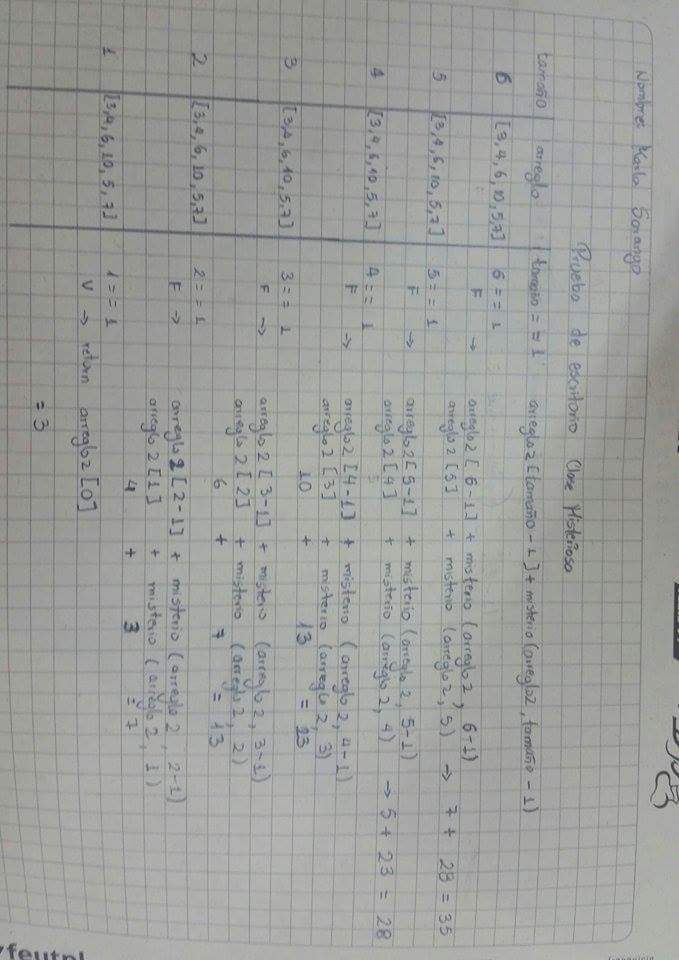 Nombre: Karla Sarango
Prueba de escritorio Clase Misterioso
tamaño arreglo tamaño == 1 arreglo2[tamaño-1] + misterio (arreglo2, tamaño-1)
6 [3,4,6,10,5,7] 6 == 1 arreglo2[6-1] + misterio (arreglo2, 6-1)
F → arreglo2[5] + misterio (arreglo2, 5) → 7 + 28 = 35
5 [3,4,6,10,5,7] 5 == 1 arreglo2[5-1] + misterio (arreglo2, 5-1)
F → arreglo2[4] + misterio (arreglo2, 4) → 5 + 23 = 28
4 [3,4,6,10,5,7] 4 == 1 arreglo2[4-1] + misterio (arreglo2, 4-1)
F → arreglo2[3] + misterio (arreglo2, 3)
10 + 13 = 23
3 [3,4,6,10,5,7] 3 == 1 arreglo2[3-1] + misterio (arreglo2, 3-1)
F → arreglo2[2] + misterio (arreglo2, 2)
6 + 7 = 13
2 [3,4,6,10,5,7] 2 == 1 arreglo2[2-1] + misterio (arreglo2, 2-1)
F → arreglo2[1] + misterio (arreglo2, 1)
4 + 3 = 7
1 [3,4,6,10,5,7] 1 == 1
V → return arreglo2[0]
= 3
feutpl